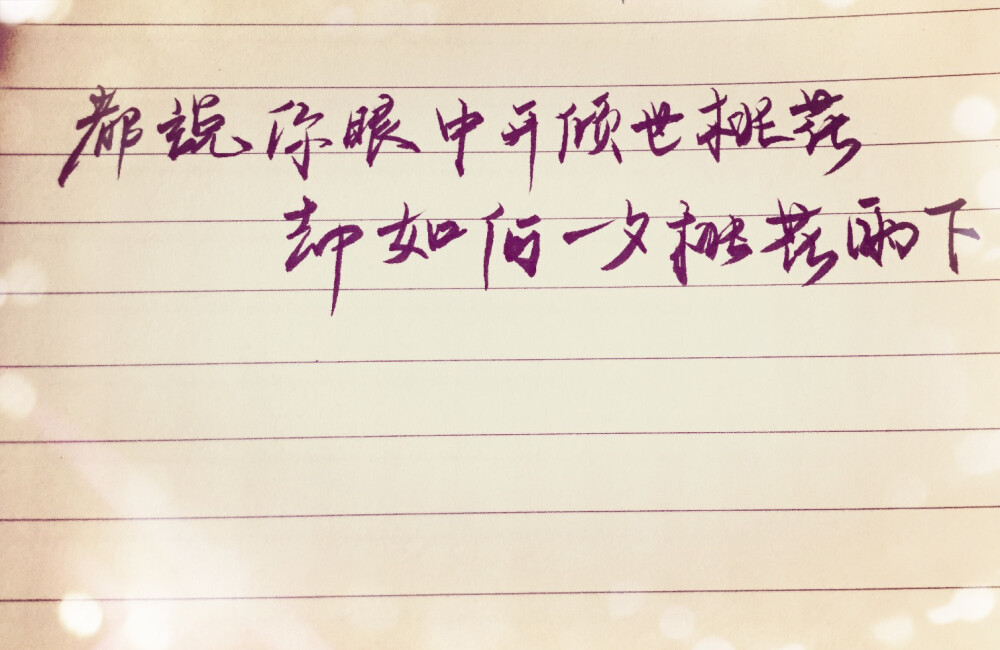 都說你眼中开倾世桃花
却如何一夕桃花雨下